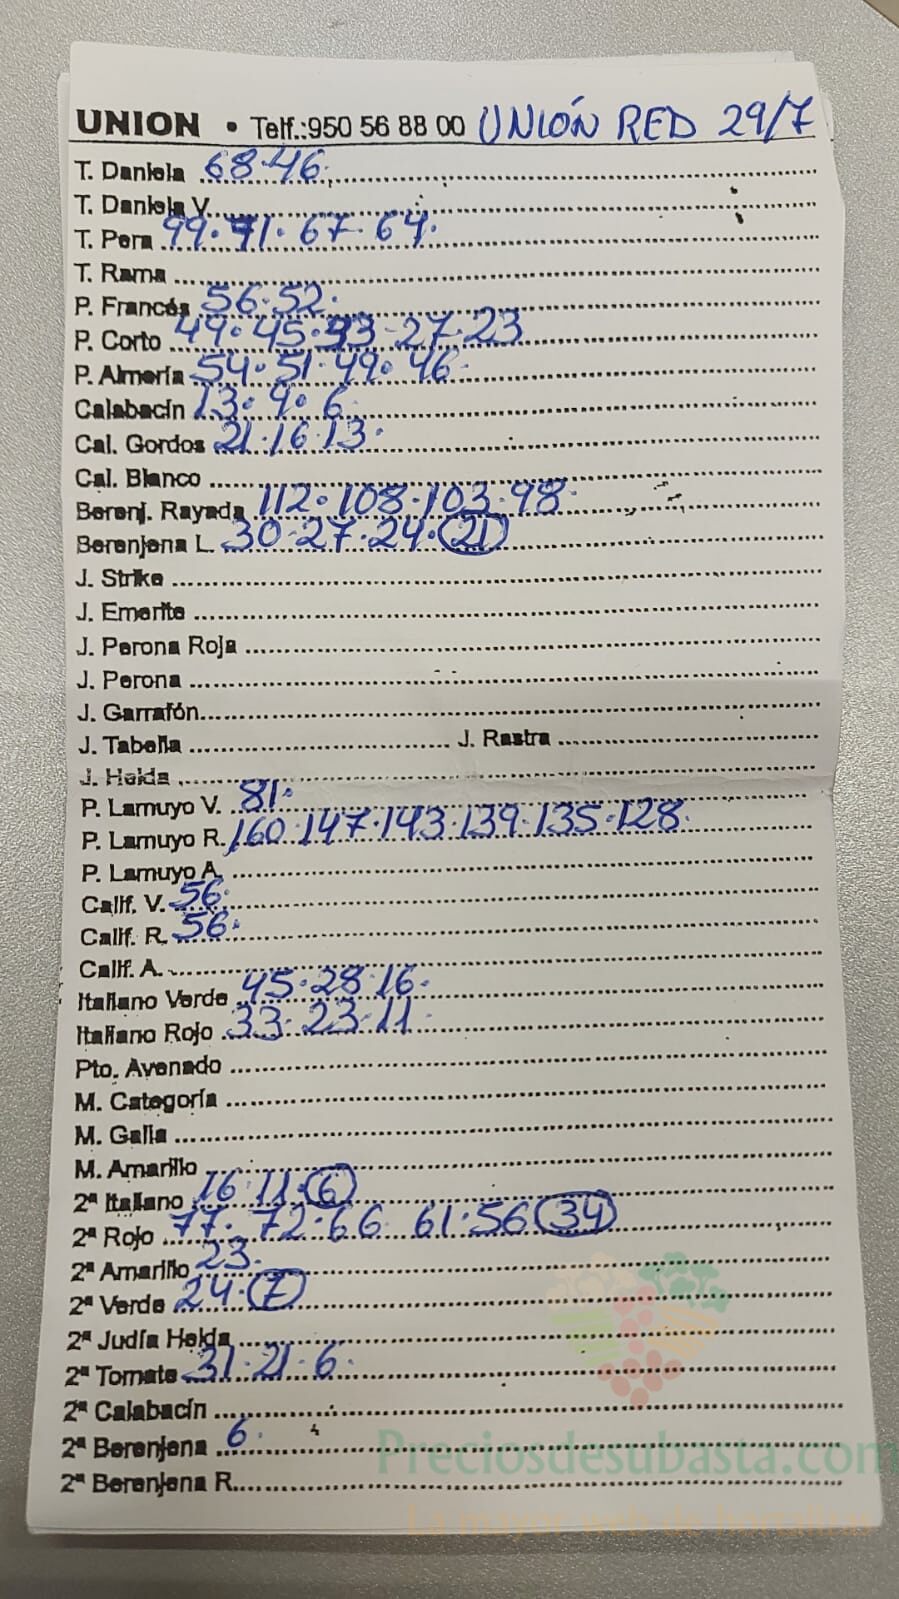 UNION • Telf.:950 56 88 00 UNIÓN RED 29/7
T. Daniela 68·46·
T. Daniela V.
T. Pera 99·71·67·64·
T. Rama
P. Francés 56·52·
P. Corto 49·45·33·27·23
P. Almería 54·51·49·46·
Calabacín 13·9·6
Cal. Gordos 21·16·13·
Cal. Blanco
Berenj. Rayada 112·108·103·98·
Berenjena L. 30·27·24·21
J. Strike
J. Emerite
J. Perona Roja
J. Perona
J. Garrafón
J. Tabella J. Rastra
J. Helda
P. Lamuyo V. 81·
P. Lamuyo R. 160·147·143·139·135·128·
P. Lamuyo A.
Calif. V. 56·
Calif. R. 56·
Calif. A.
Italiano Verde 45·28·16·
Italiano Rojo 33·23·11·
Pto. Avenado
M. Categoría
M. Galia
M. Amarillo
2ª Italiano 16·11·6
2ª Rojo 77·72·66 61·56 34
2ª Amarillo 23·
2ª Verde 24·7
2ª Judía Helda
2ª Tomate 31·21·6·
2ª Calabacín
2ª Berenjena 6·
2ª Berenjena R.
Preciosdesubasta.com
La mayor web de hortalizas